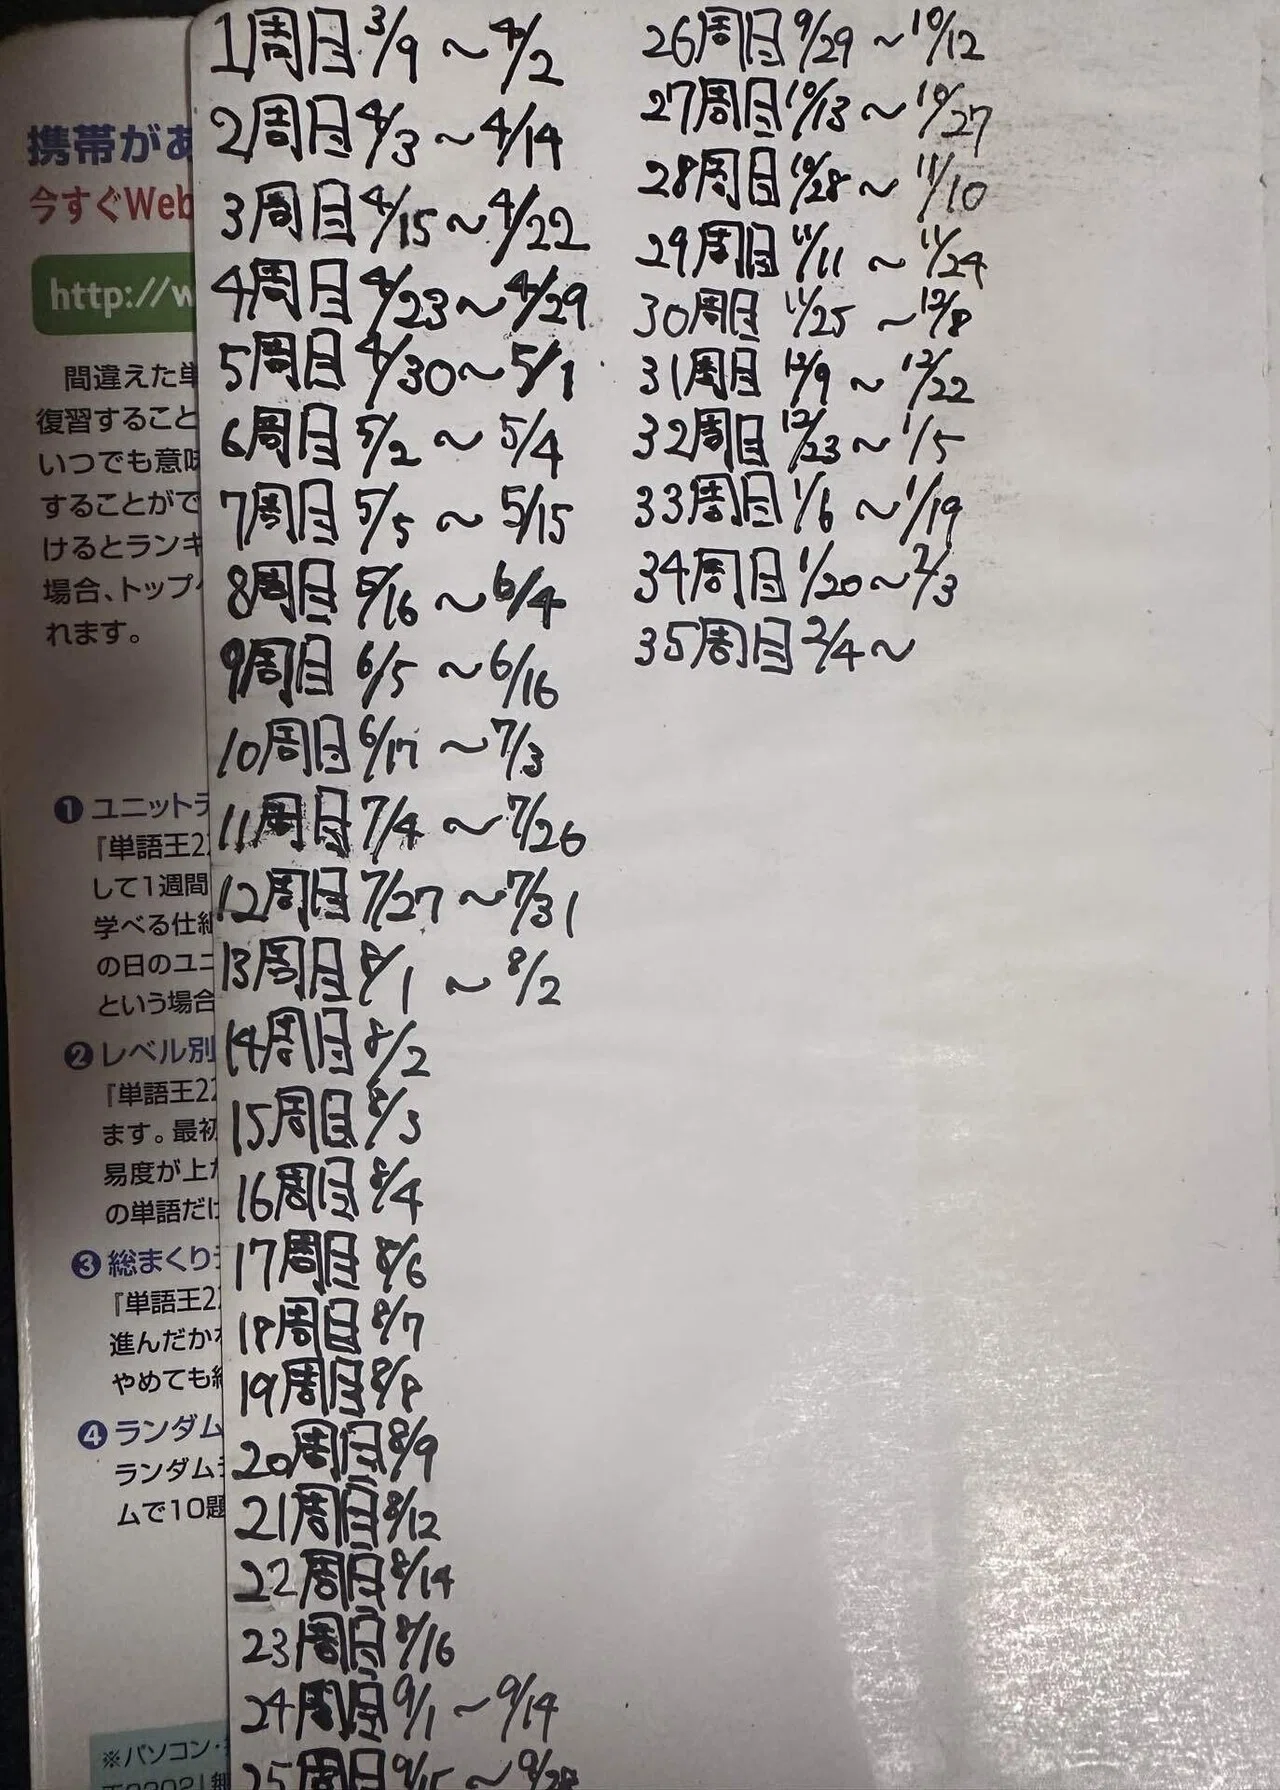 携帯があ
今すぐWeb
http://w
間違えた単
復習すること
いつでも意味
することがで
けるとランキ
場合、トップ
れます。
❶ユニットテ
『単語王22
して1週間
学べる仕組
の日のユニ
という場合
❷レベル別
『単語王22
ます。最初
易度が上が
の単語だけ
❸総まくり
『単語王22
進んだかを
やめても続
❹ランダム
ランダムテ
ムで10題
※パソコン・
1周目 3/9 ~ 4/2
2周目 4/3 ~ 4/14
3周目 4/15 ~ 4/22
4周目 4/23 ~ 4/29
5周目 4/30 ~ 5/1
6周目 5/2 ~ 5/4
7周目 5/5 ~ 5/15
8周目 5/16 ~ 6/4
9周目 6/5 ~ 6/16
10周目 6/17 ~ 7/3
11周目 7/4 ~ 7/26
12周目 7/27 ~ 7/31
13周目 8/1 ~ 8/2
14周目 8/2
15周目 8/3
16周目 8/4
17周目 8/6
18周目 8/7
19周目 8/8
20周目 8/9
21周目 8/12
22周目 8/14
23周目 8/16
24周目 9/1 ~ 9/14
25周目 9/15 ~ 9/28
26周目 9/29 ~ 10/12
27周目 10/13 ~ 10/27
28周目 10/28 ~ 11/10
29周目 11/11 ~ 11/24
30周目 11/25 ~ 12/8
31周目 12/9 ~ 12/22
32周目 12/23 ~ 1/5
33周目 1/6 ~ 1/19
34周目 1/20 ~ 2/3
35周目 2/4 ~